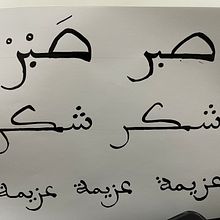 صبر صَبْرْ
شكر شكر
عزيمة عزيمة عزيمة